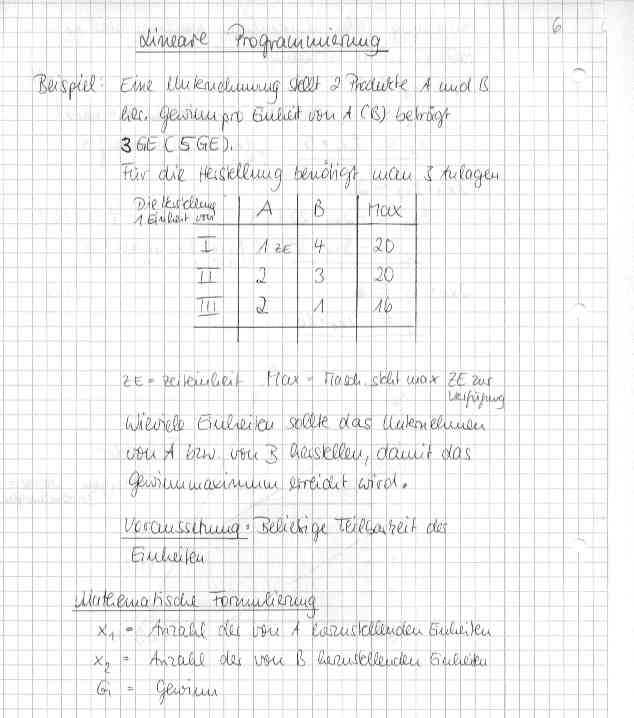 6
Lineare Programmierung
Beispiel: Eine Unternehmung stellt 2 Produkte A und B
her. Gewinn pro Einheit von A (B) beträgt
3 GE (5 GE).
Für die Herstellung benötigt man 3 Anlagen
Die Herstellung
1 Einheit von A B Max
I 1 ZE 4 20
II 2 3 20
III 2 1 16
ZE = Zeiteinheit Max = Masch. steht max ZE zur
Verfügung
Wieviele Einheiten sollte das Unternehmen
von A bzw. von B herstellen, damit das
Gewinnmaximum erreicht wird.
Voraussetzung: Beliebige Teilbarkeit der
Einheiten
Mathematische Formulierung
x₁ = Anzahl der von A herzustellenden Einheiten
x₂ = Anzahl der von B herzustellenden Einheiten
G = Gewinn